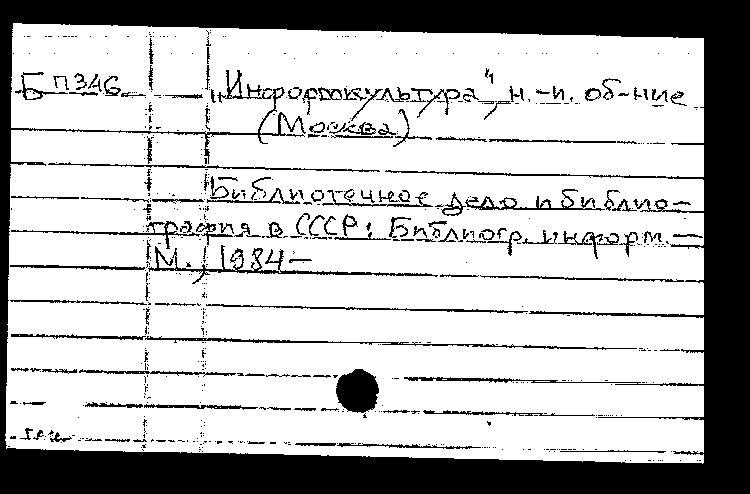 Б П346 „Информкультура", н.-и. об-ние
(Москва)
Библиотечное дело и библио-
графия в СССР: Библиогр. информ.—
М., 1984—